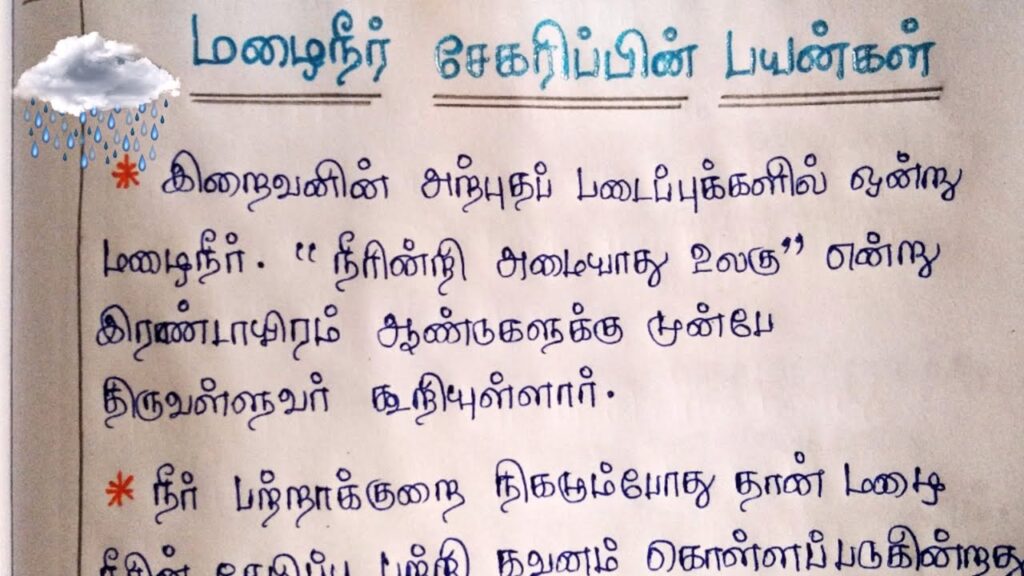 மழைநீர் சேகரிப்பின் பயன்கள்
* இறைவனின் அற்புதப் படைப்புக்களில் ஒன்று
மழைநீர். "நீரின்றி அமையாது உலகு" என்று
இரண்டாயிரம் ஆண்டுகளுக்கு முன்பே
திருவள்ளுவர் கூறியுள்ளார்.
* நீர் பற்றாக்குறை நிகழும்போது தான் மழை
நீரின் சேமிப்பு பற்றி கவனம் கொள்ளப்படுகின்றது